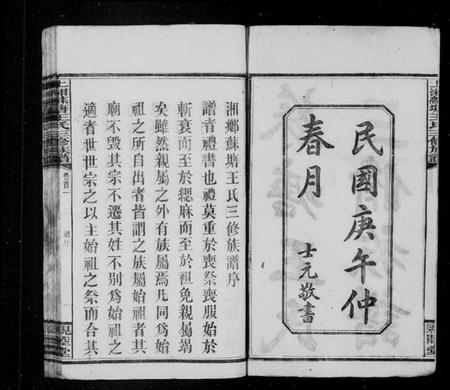 民國庚午仲
春月
士元敬書
湘鄉蘇塘王氏三修族譜序
譜者禮書也禮莫重於喪祭喪服始於
斬衰而至於緦麻而至於袒免親屬竭
矣雖然親屬之外有族屬焉凡同爲始
祖之所自出者皆謂之族屬始祖者其
廟不毀其宗不遷其姓不別爲始祖之
適者世世宗之以主始祖之祭而合其